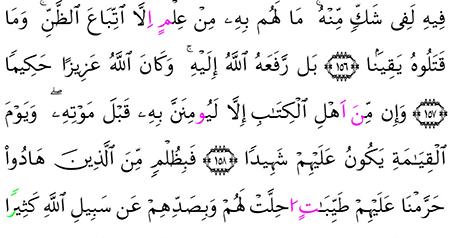 فِيهِ لَفِي شَكٍّ مِّنْهُۖ مَا لَهُم بِهِۦ مِنْ عِلْمٍ اِلَّا ٱتِّبَاعَ ٱلظَّنِّۖ وَمَا
قَتَلُوهُ يَقِينَۢا ١٥٦ بَل رَّفَعَهُ ٱللَّهُ إِلَيْهِۖ وَكَانَ ٱللَّهُ عَزِيزًا حَكِيمًا
١٥٧ وَإِن مِّنَ اَهْلِ ٱلْكِتَٰبِ إِلَّا لَيُومِنَنَّ بِهِۦ قَبْلَ مَوْتِهِۦۖ وَيَوْمَ
ٱلْقِيَٰمَةِ يَكُونُ عَلَيْهِمْ شَهِيدًا ١٥٨ فَبِظُلْمٍ مِّنَ ٱلَّذِينَ هَادُوا۟
حَرَّمْنَا عَلَيْهِمْ طَيِّبَٰتٍ ا۟حِلَّتْ لَهُمْ وَبِصَدِّهِمْ عَن سَبِيلِ ٱللَّهِ كَثِيرًا